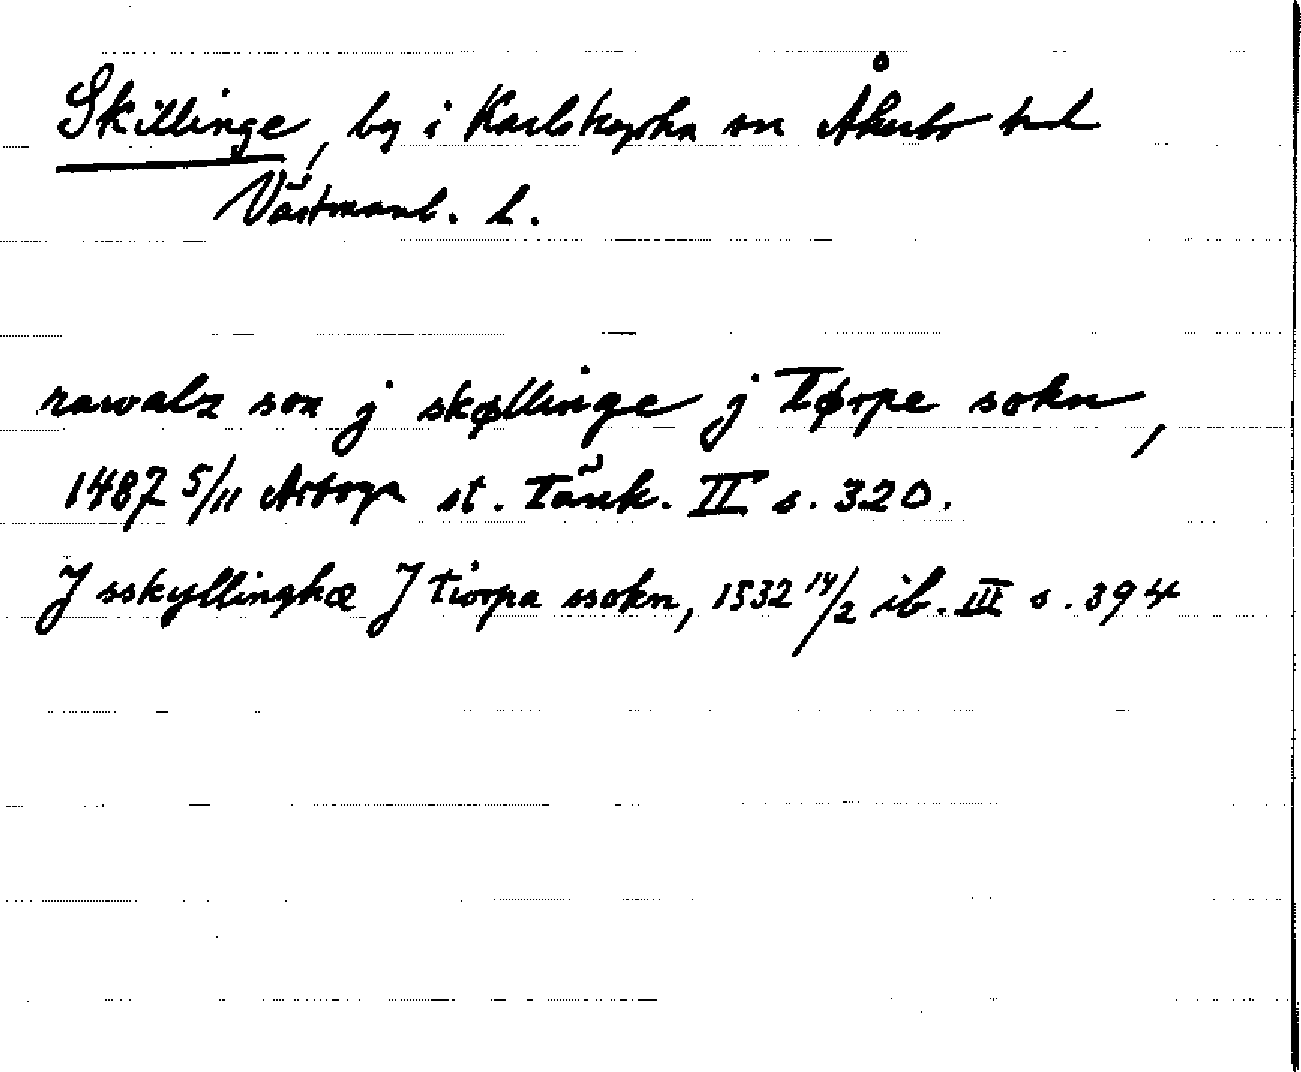 Skillinge, by i Karlskyrka sn Åkerbo hd
Västmanl. l.
rawalz son j skøllinge j Tørpe sokn,
1487 5/11 Arboga st. tänk. II s. 320.
J sskyllinghæ J tiorpa ssokn, 1532 14/2 ib. III s. 394